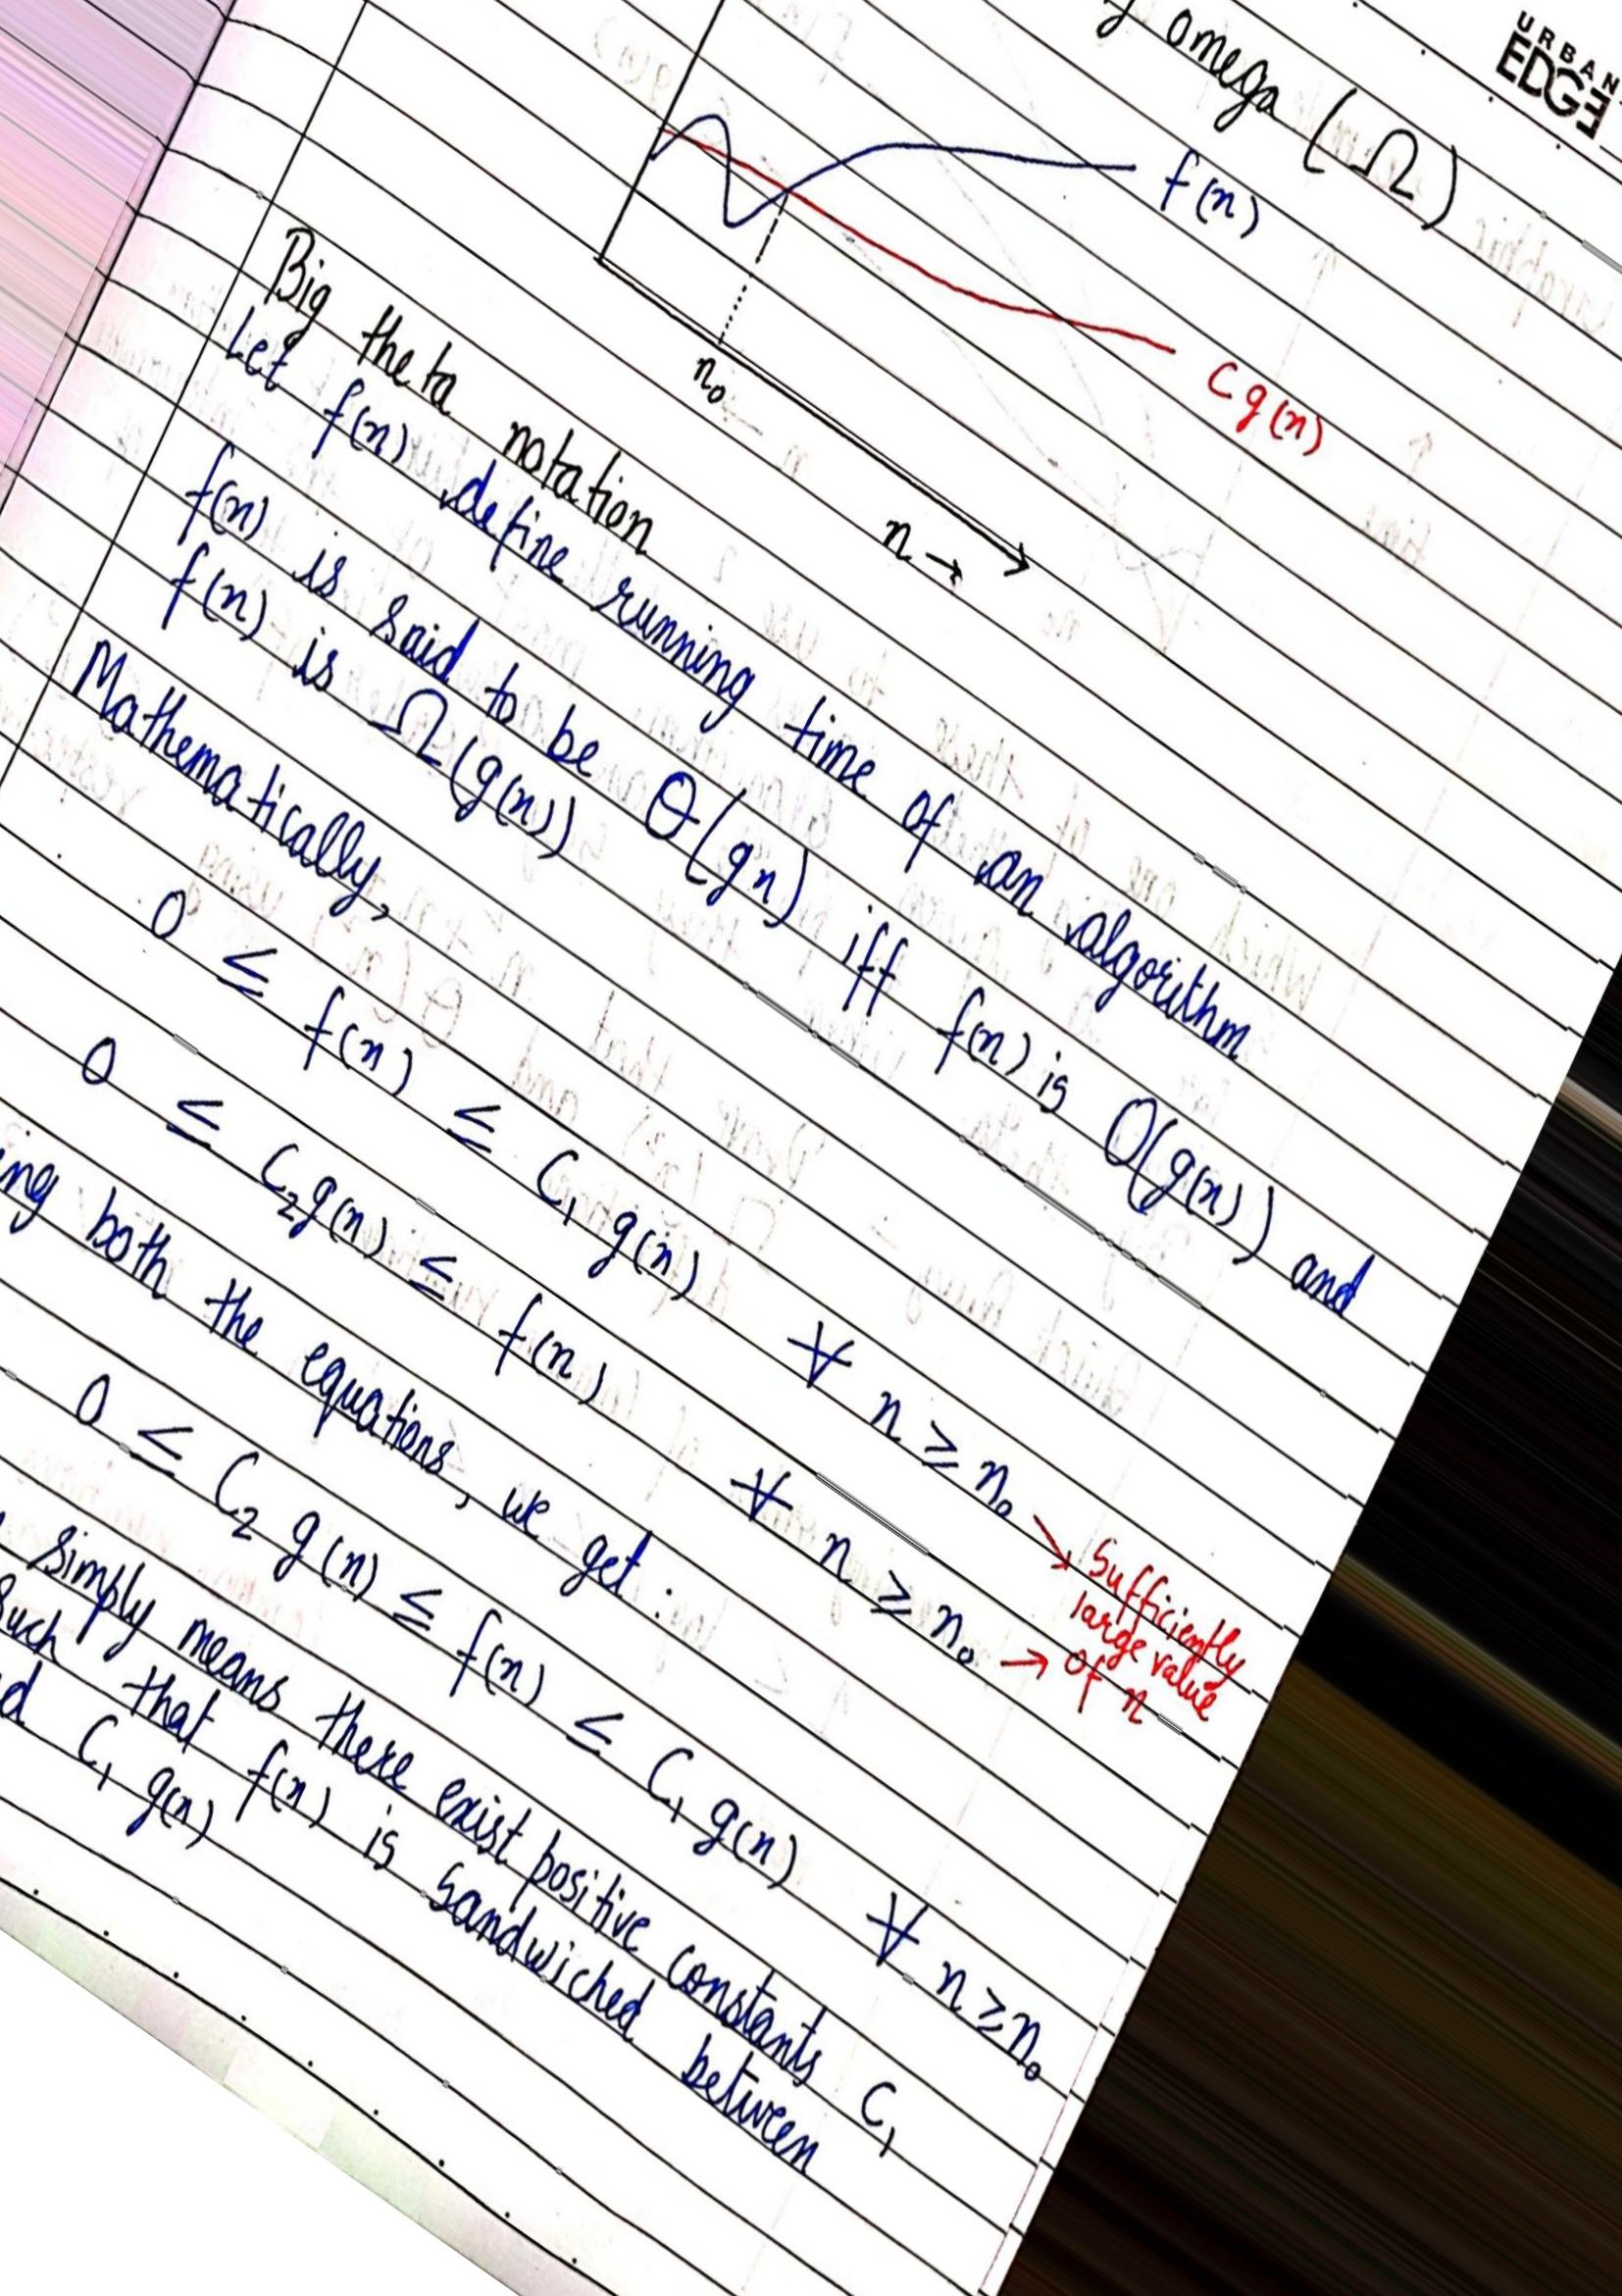 URBAN
EDGE
omega (Ω)
f(n)
c g(n)
n₀
n →
Big theta notation
Let f(n) define running time of an algorithm
f(n) is said to be Θ(gn) iff f(n) is O(g(n)) and
f(n) is Ω(g(n))
Mathematically,
0 ≤ f(n) ≤ C₁ g(n) ∀ n ≥ n₀
0 ≤ C₂g(n) ≤ f(n) ∀ n ≥ n₀
→ Sufficiently
large value
→ of n
both the equations, we get :
0 ≤ C₂ g(n) ≤ f(n) ≤ C₁ g(n) ∀ n ≥ n₀
simply means there exist positive constants C₁
such that f(n) is sandwiched between
C₁ g(n)